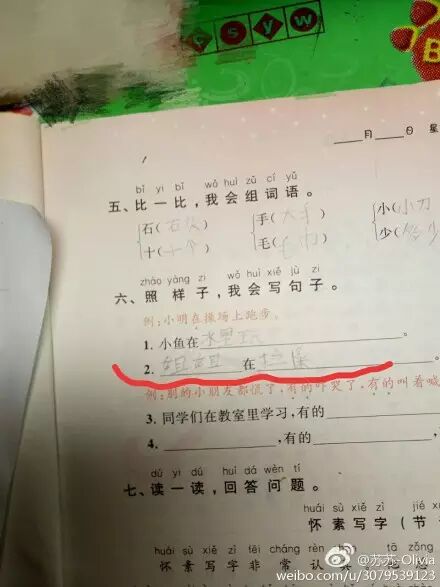 c s y w
B
月 日 星
bǐ yi bǐ wǒ huì zǔ cí yǔ
五、比一比，我会组词语。
石(石头) 手(大手) 小(小刀
十(十个) 毛(毛巾) 少(多少
zhào yàng zi wǒ huì xiě jù zi
六、照样子，我会写句子。
例：小明在操场上跑步。
1. 小鱼在水里玩。
2. 姐姐在
例：别的小朋友都慌了，有的吓哭了，有的叫着喊
3. 同学们在教室里学习，有的
4. ，有的
dú yi dú huí dá wèn tí
七、读一读，回答问题。
huái sù xiě zì jié
怀素写字(节
huái sù xiě zì fēi cháng rèn tā zǒng
怀素写字非常认
@苏苏-Olivia
weibo.com/u/3079539123